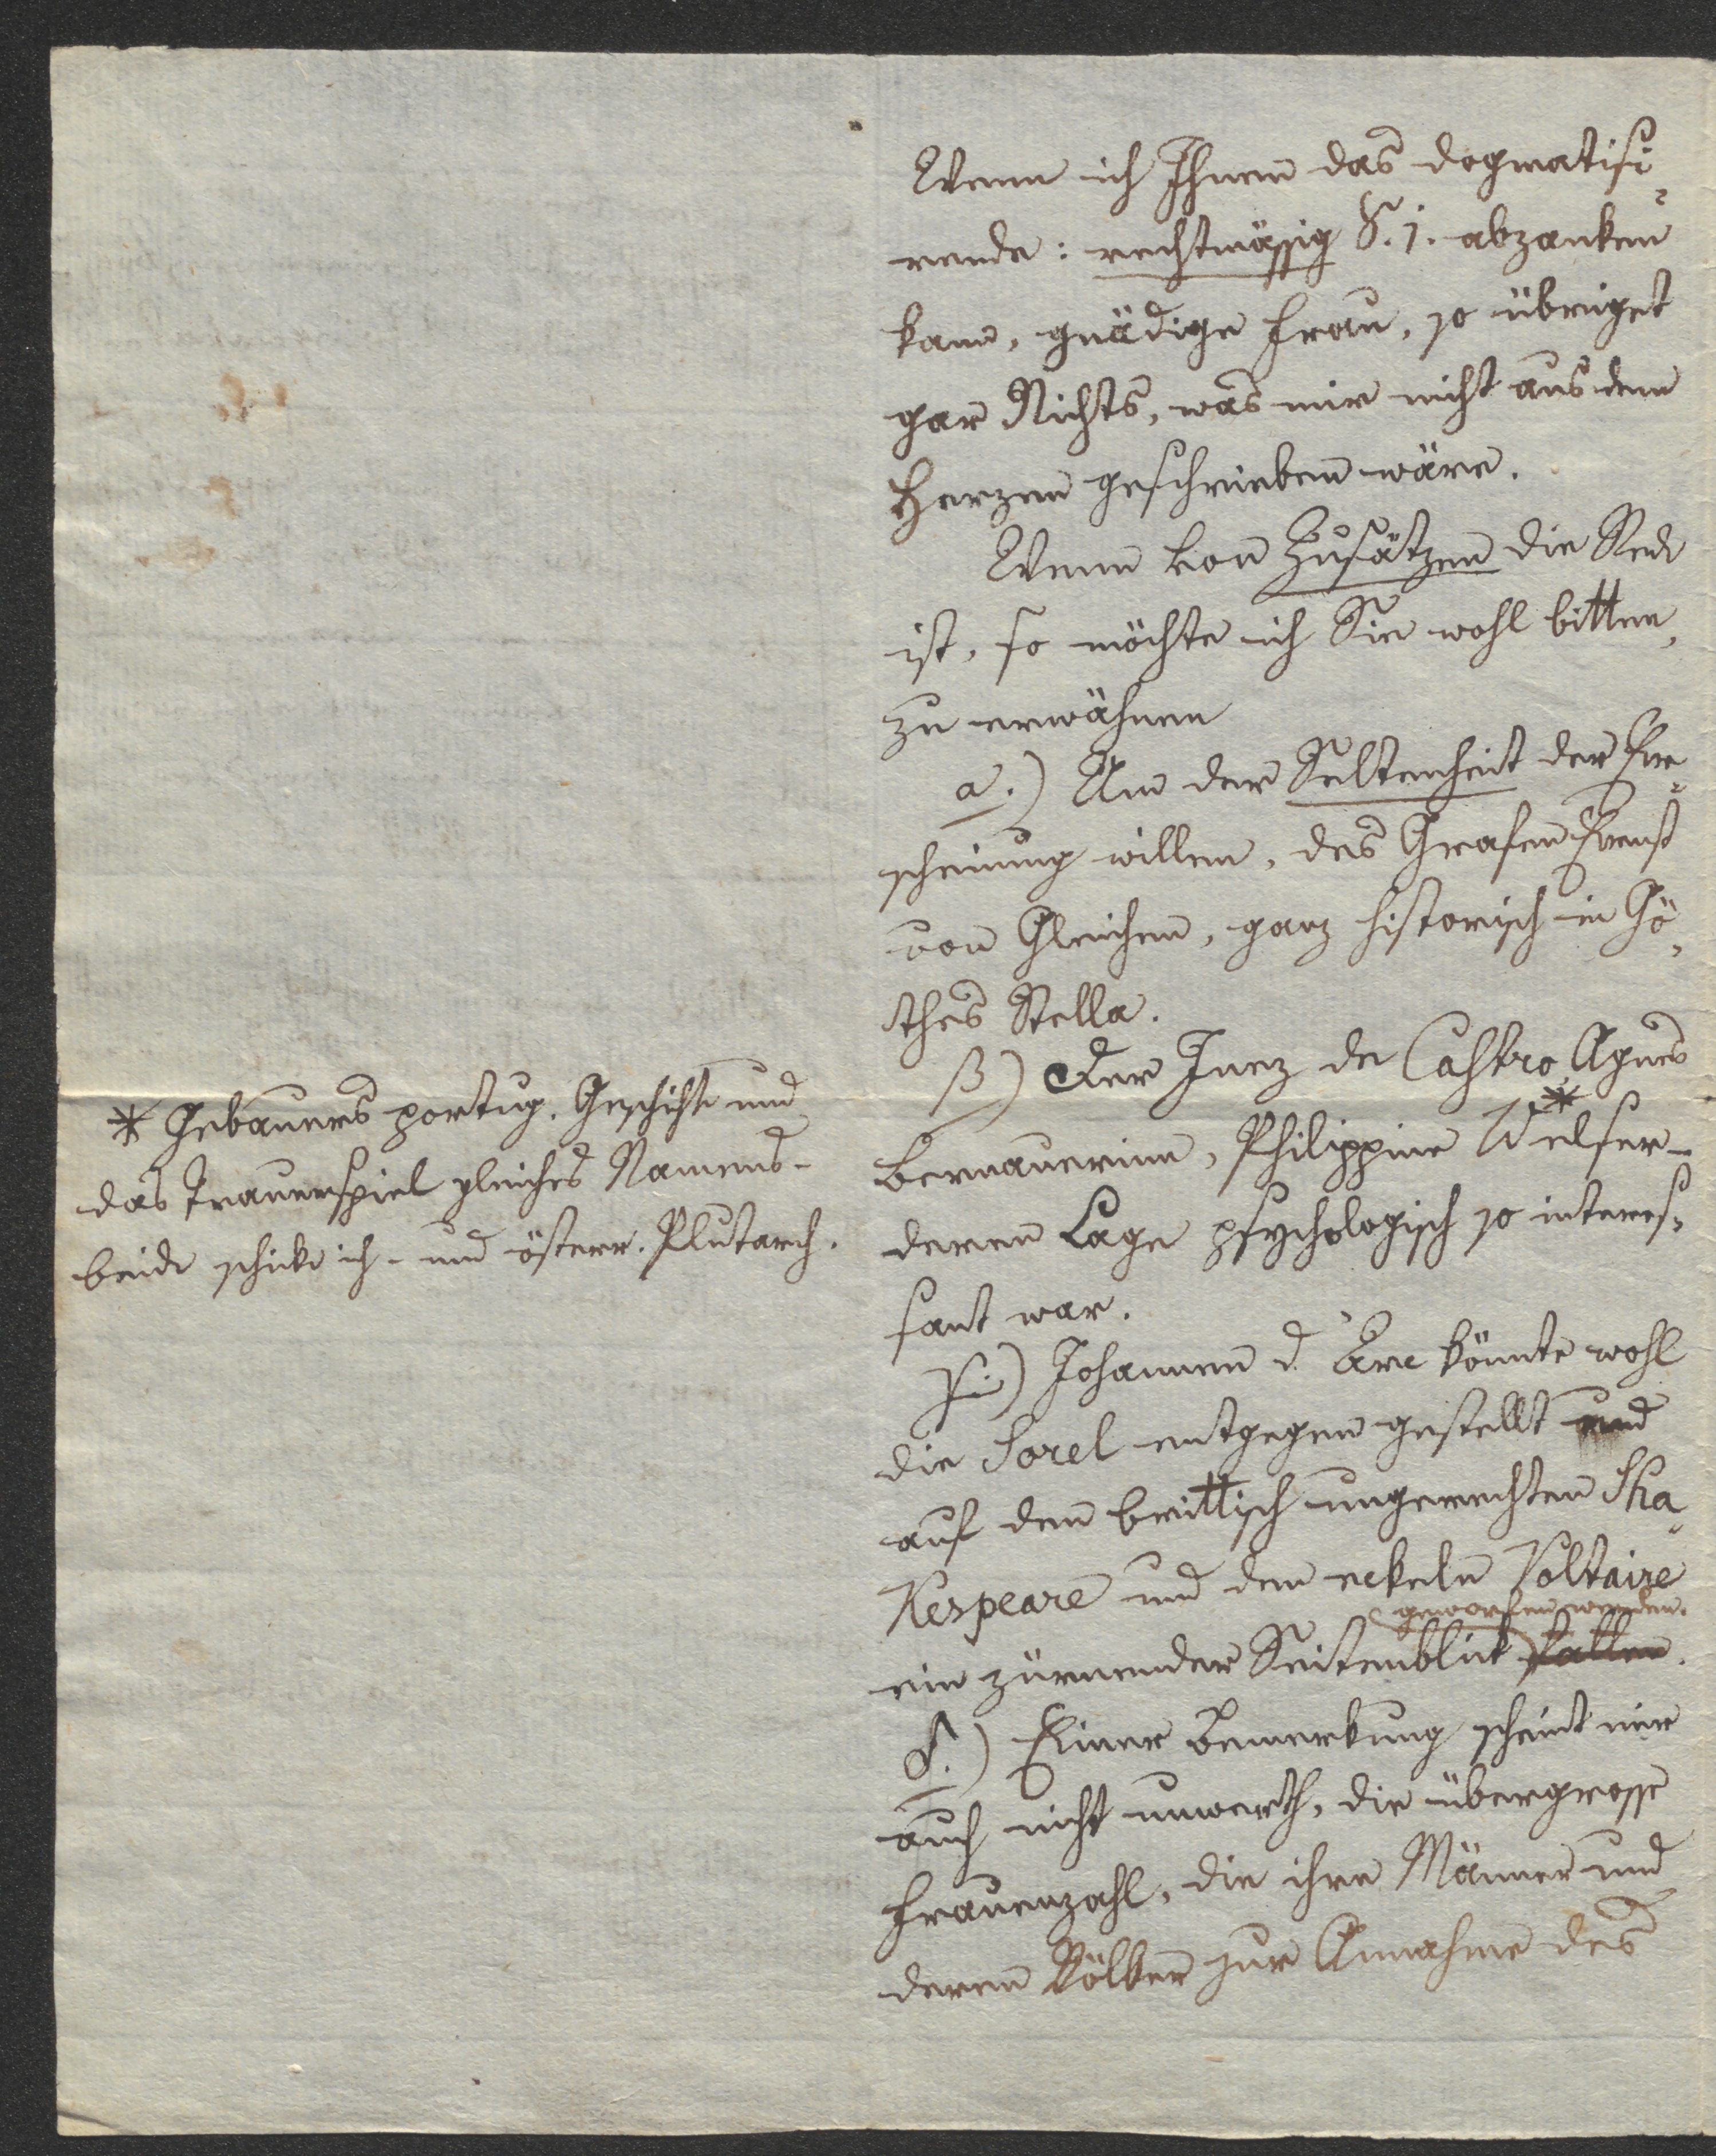 Wenn ich Ihnen das dogmatisi¸
rende: rechtmässig S. 7. abzanken
kann, gnädige Frau, so übriget
gar Nichts, was mir nicht aus dem
Herzen geschrieben wäre.
Wenn von Zusätzen die Rede
ist, so möchte ich Sie wohl bitten,
zu erwähnen
α.) Um der Seltenheit der Er¸
scheinung willen, des Grafen Ernst
von Gleichen, ganz historisch in Gö¸
thes Stella.
β) Der Inez de Castro, Agnes
Bernauerinn, Philippine Welser *–
deren Lage psychologisch so interes¸
sant war.
* Gebauers portug. Geschichte und
das Trauerspiel gleiches Namens –
beide schicke ich – und österr. Plutarch.
γ.) Johannen d'Arc könnte wohl
die Sorel entgegen gestellt und
auf den brittisch ungerechten Sha¸
kespeare und den eckeln Voltaire
geworfen werden.
ein zürnender Seitenblick fallen.
δ.) Einer Bemerkung scheint mir
auch nicht unwerth, die übergrosse
Frauenzahl, die ihre Männer und
deren Völker zur Annahme des